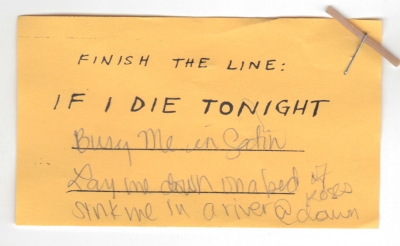 FINISH THE LINE:
IF I DIE TONIGHT
Bury Me in Satin
Lay me down on a bed of Roses
sink me in a river @ dawn